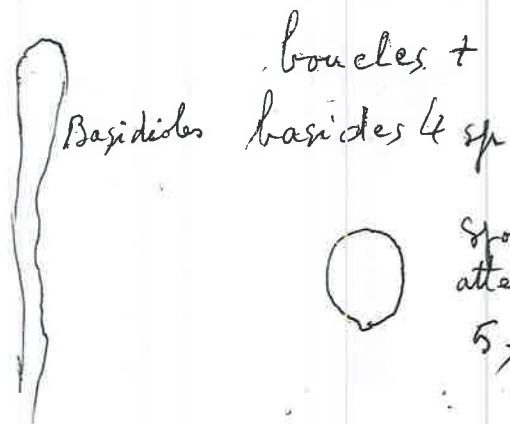 boucles +
Basidioles
basides 4 sp
spo
atte
5,